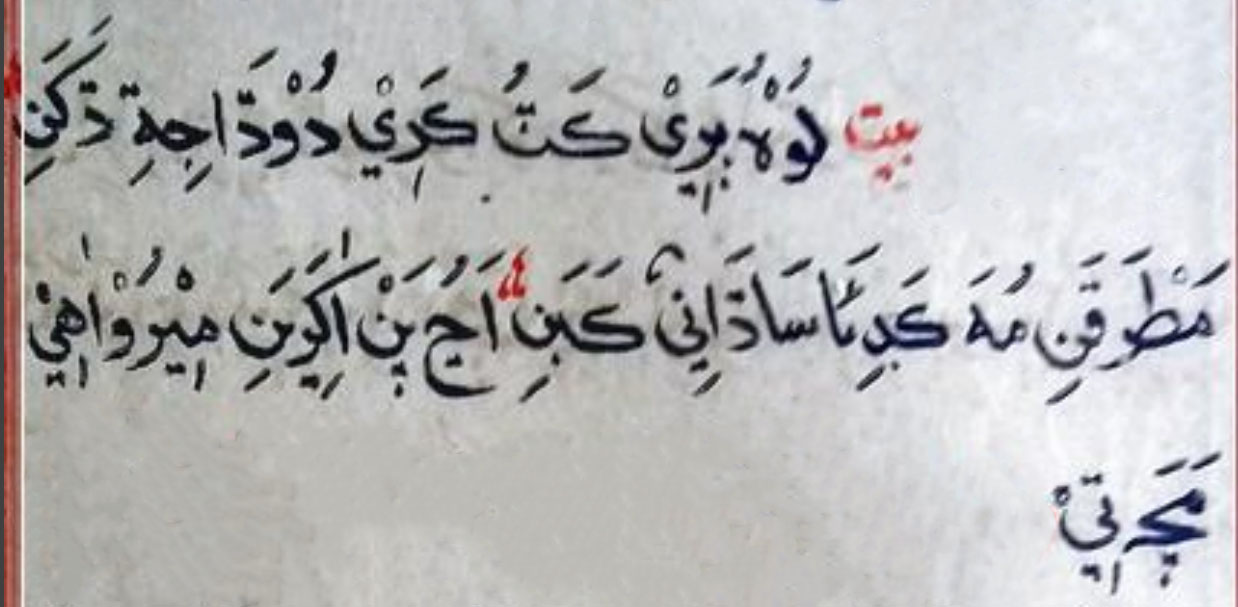 بيت لُوْهُ بَرِيْ كَتُ كَرِيْ دُوْدّاجِهِ دّكَنِ
مَطْرَقَنِ مُهَ كَڍِيَا سَادَّانِيْ كَبَنِ اَجُ پَنْ اَكِرَيَنِ مِيْرُوْ اٰهِيْ
مَچَ تِيْ